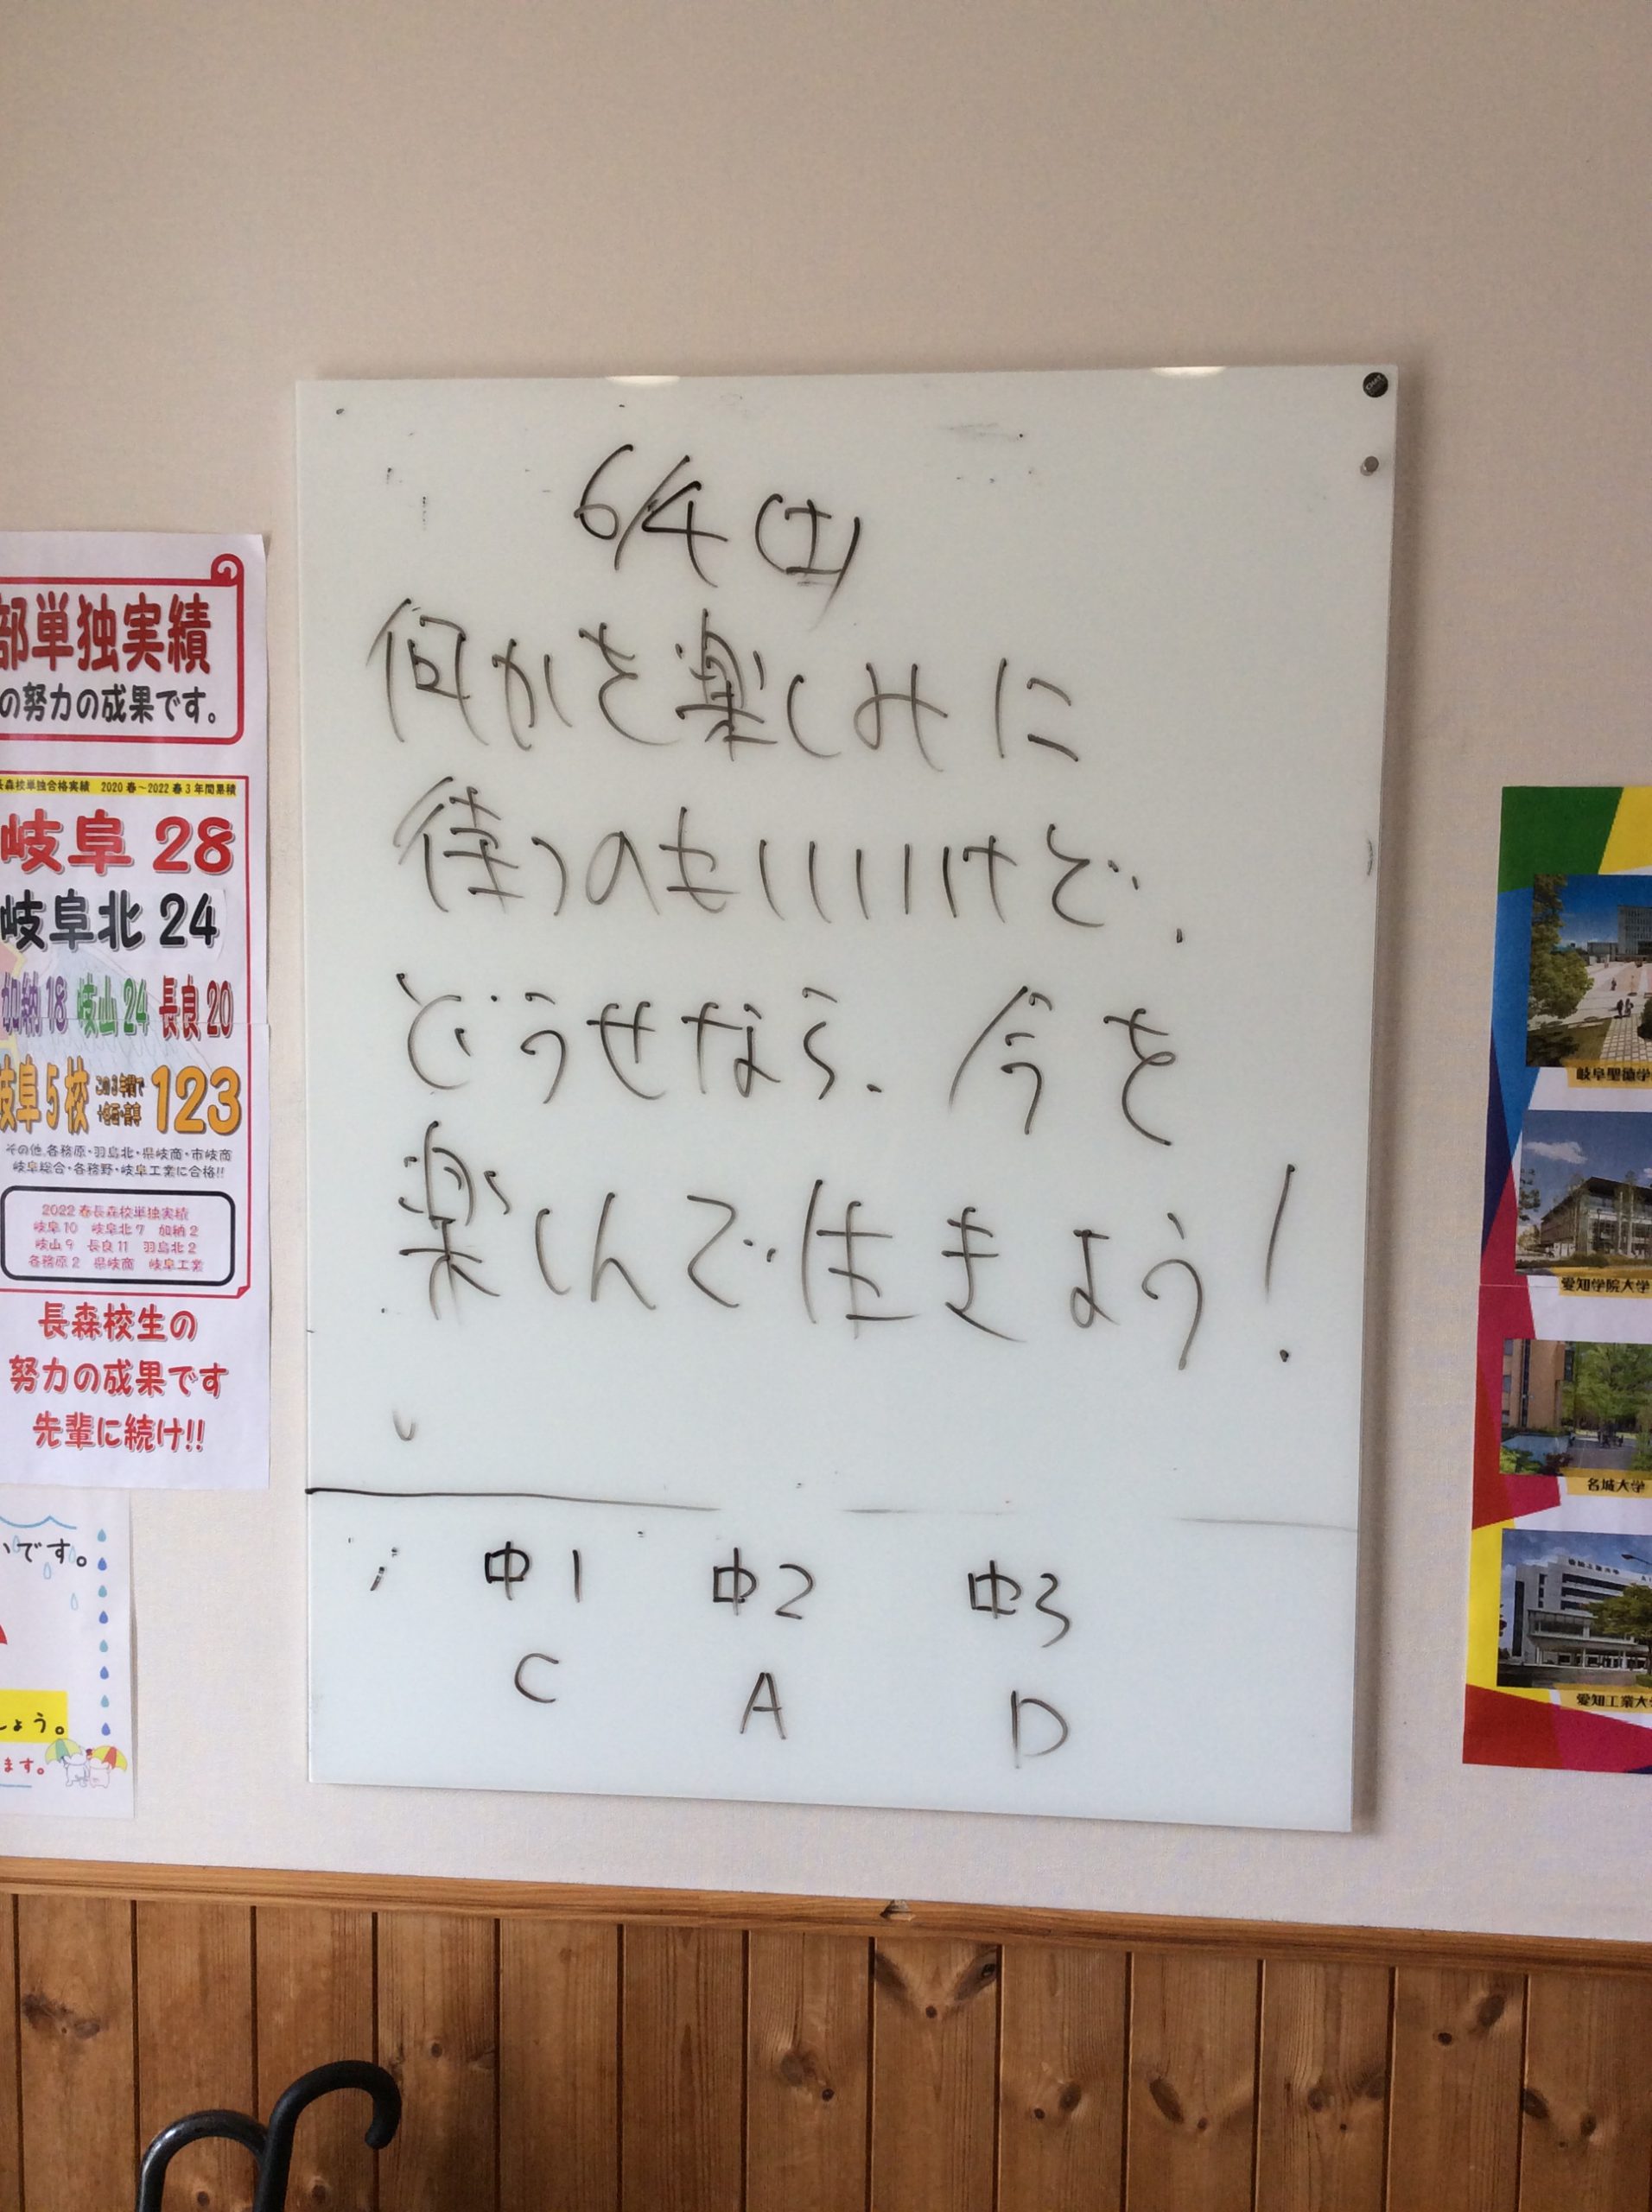 6/4(土)
何かを楽しみに
待つのもいいけど、
どうせなら、今を
楽しんで生きよう!
中1 中2 中3
C A D
部単独実績
の努力の成果です。
長森校単独合格実績 2020春~2022春3年間累積
岐阜 28
岐阜北 24
加納18 岐山24 長良20
岐阜5校 この3年間で 123
その他、各務原・羽島北・県岐商・市岐商
岐阜総合・各務野・岐阜工業に合格!!
2022春長森校単独実績
岐阜10 岐阜北7 加納2
岐山9 長良11 羽島北2
各務原2 県岐商 岐阜工業
長森校生の
努力の成果です
先輩に続け!!
いです。
しょう。
ます。
岐阜聖徳学
愛知学院大学
名城大学
愛知工業大